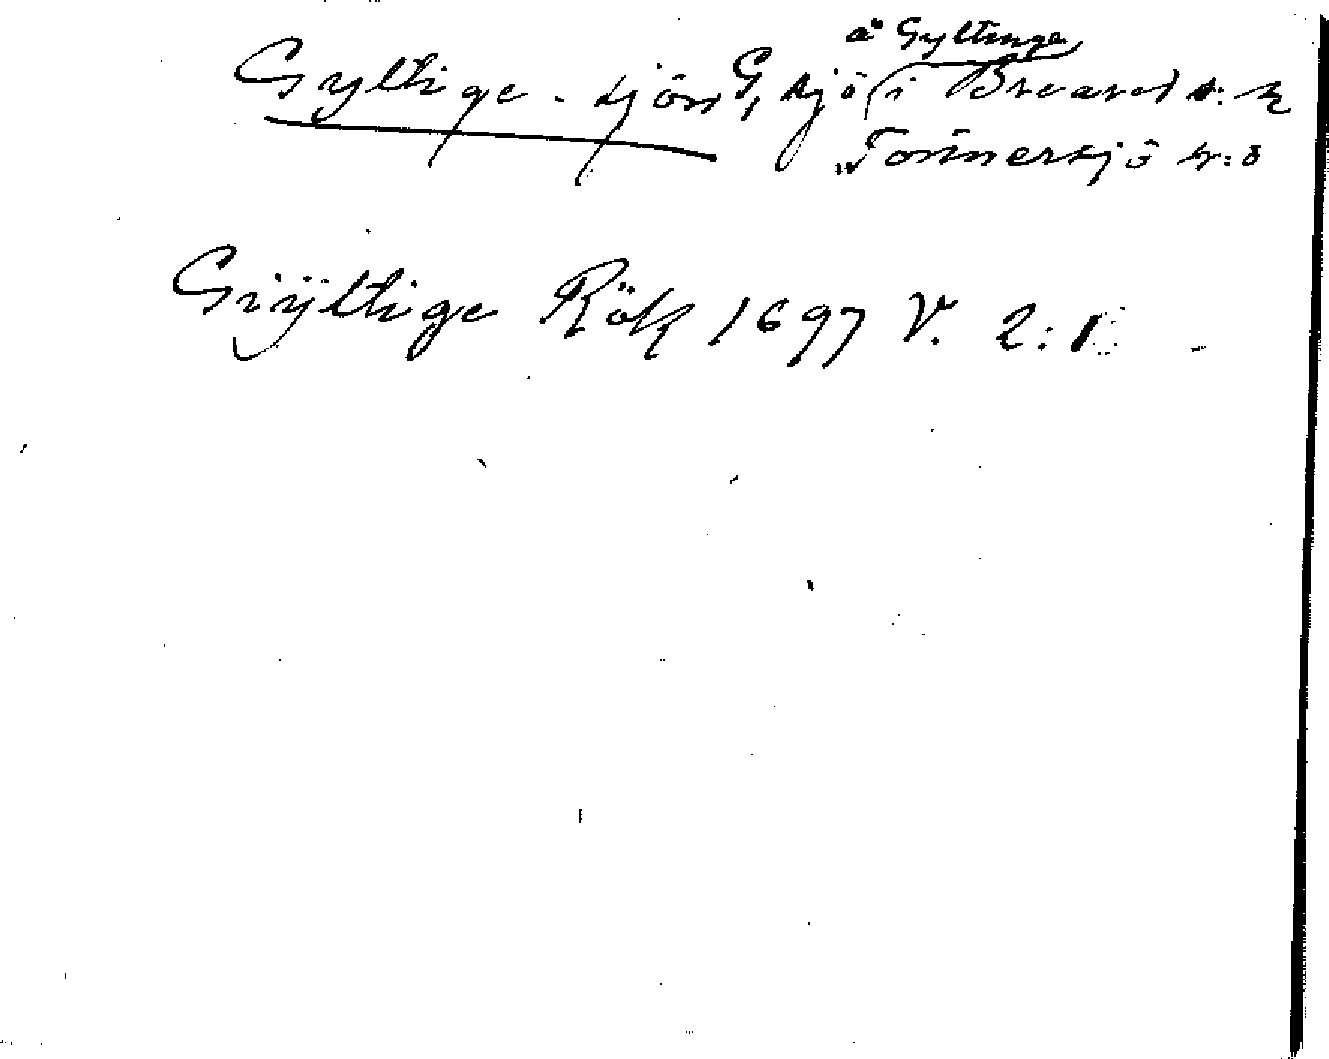 å Gyltinge
Gyltige-sjön G, sjö i Breared s:n
" Tönnersjö h:d
Giÿltige Rök 1697 V. 2:1